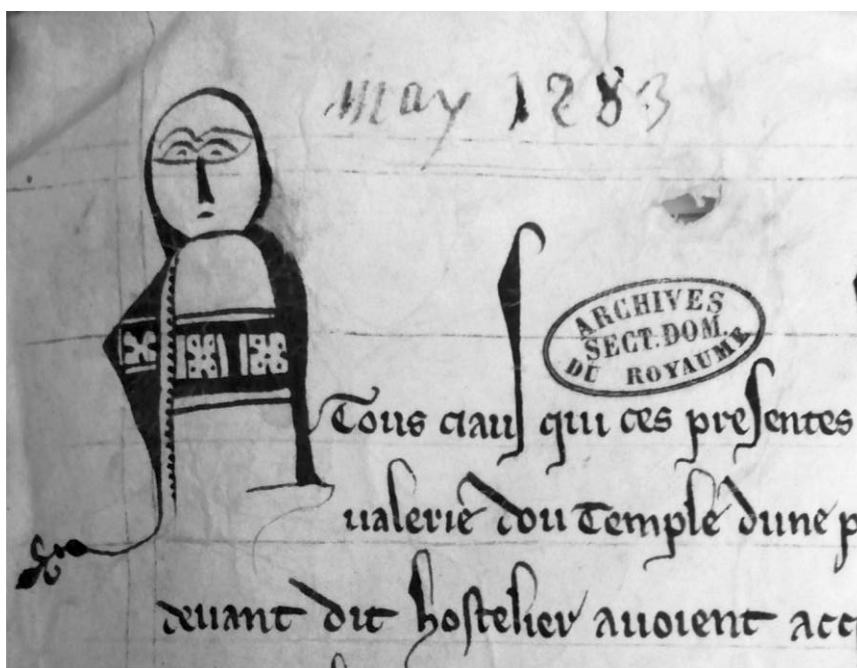 may 1283
ARCHIVES
SECT. DOM.
DU ROYAUME
Tous ciaus qui ces presentes
valerie dou Temple dune p
devant dit hostelier avoient acc